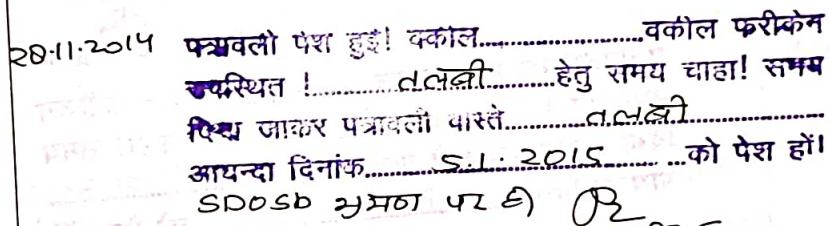 28.11.2014 पत्रावली पेश हुई! वकील..............................वकील फरीकेन
उपस्थित !..............तलबी..............हेतु समय चाहा! समय
दिया जाकर पत्रावली वास्ते..............तलबी..............
आयन्दा दिनांक..............5.1.2015..............को पेश हों।
SDOSD भ्रमण पर है)